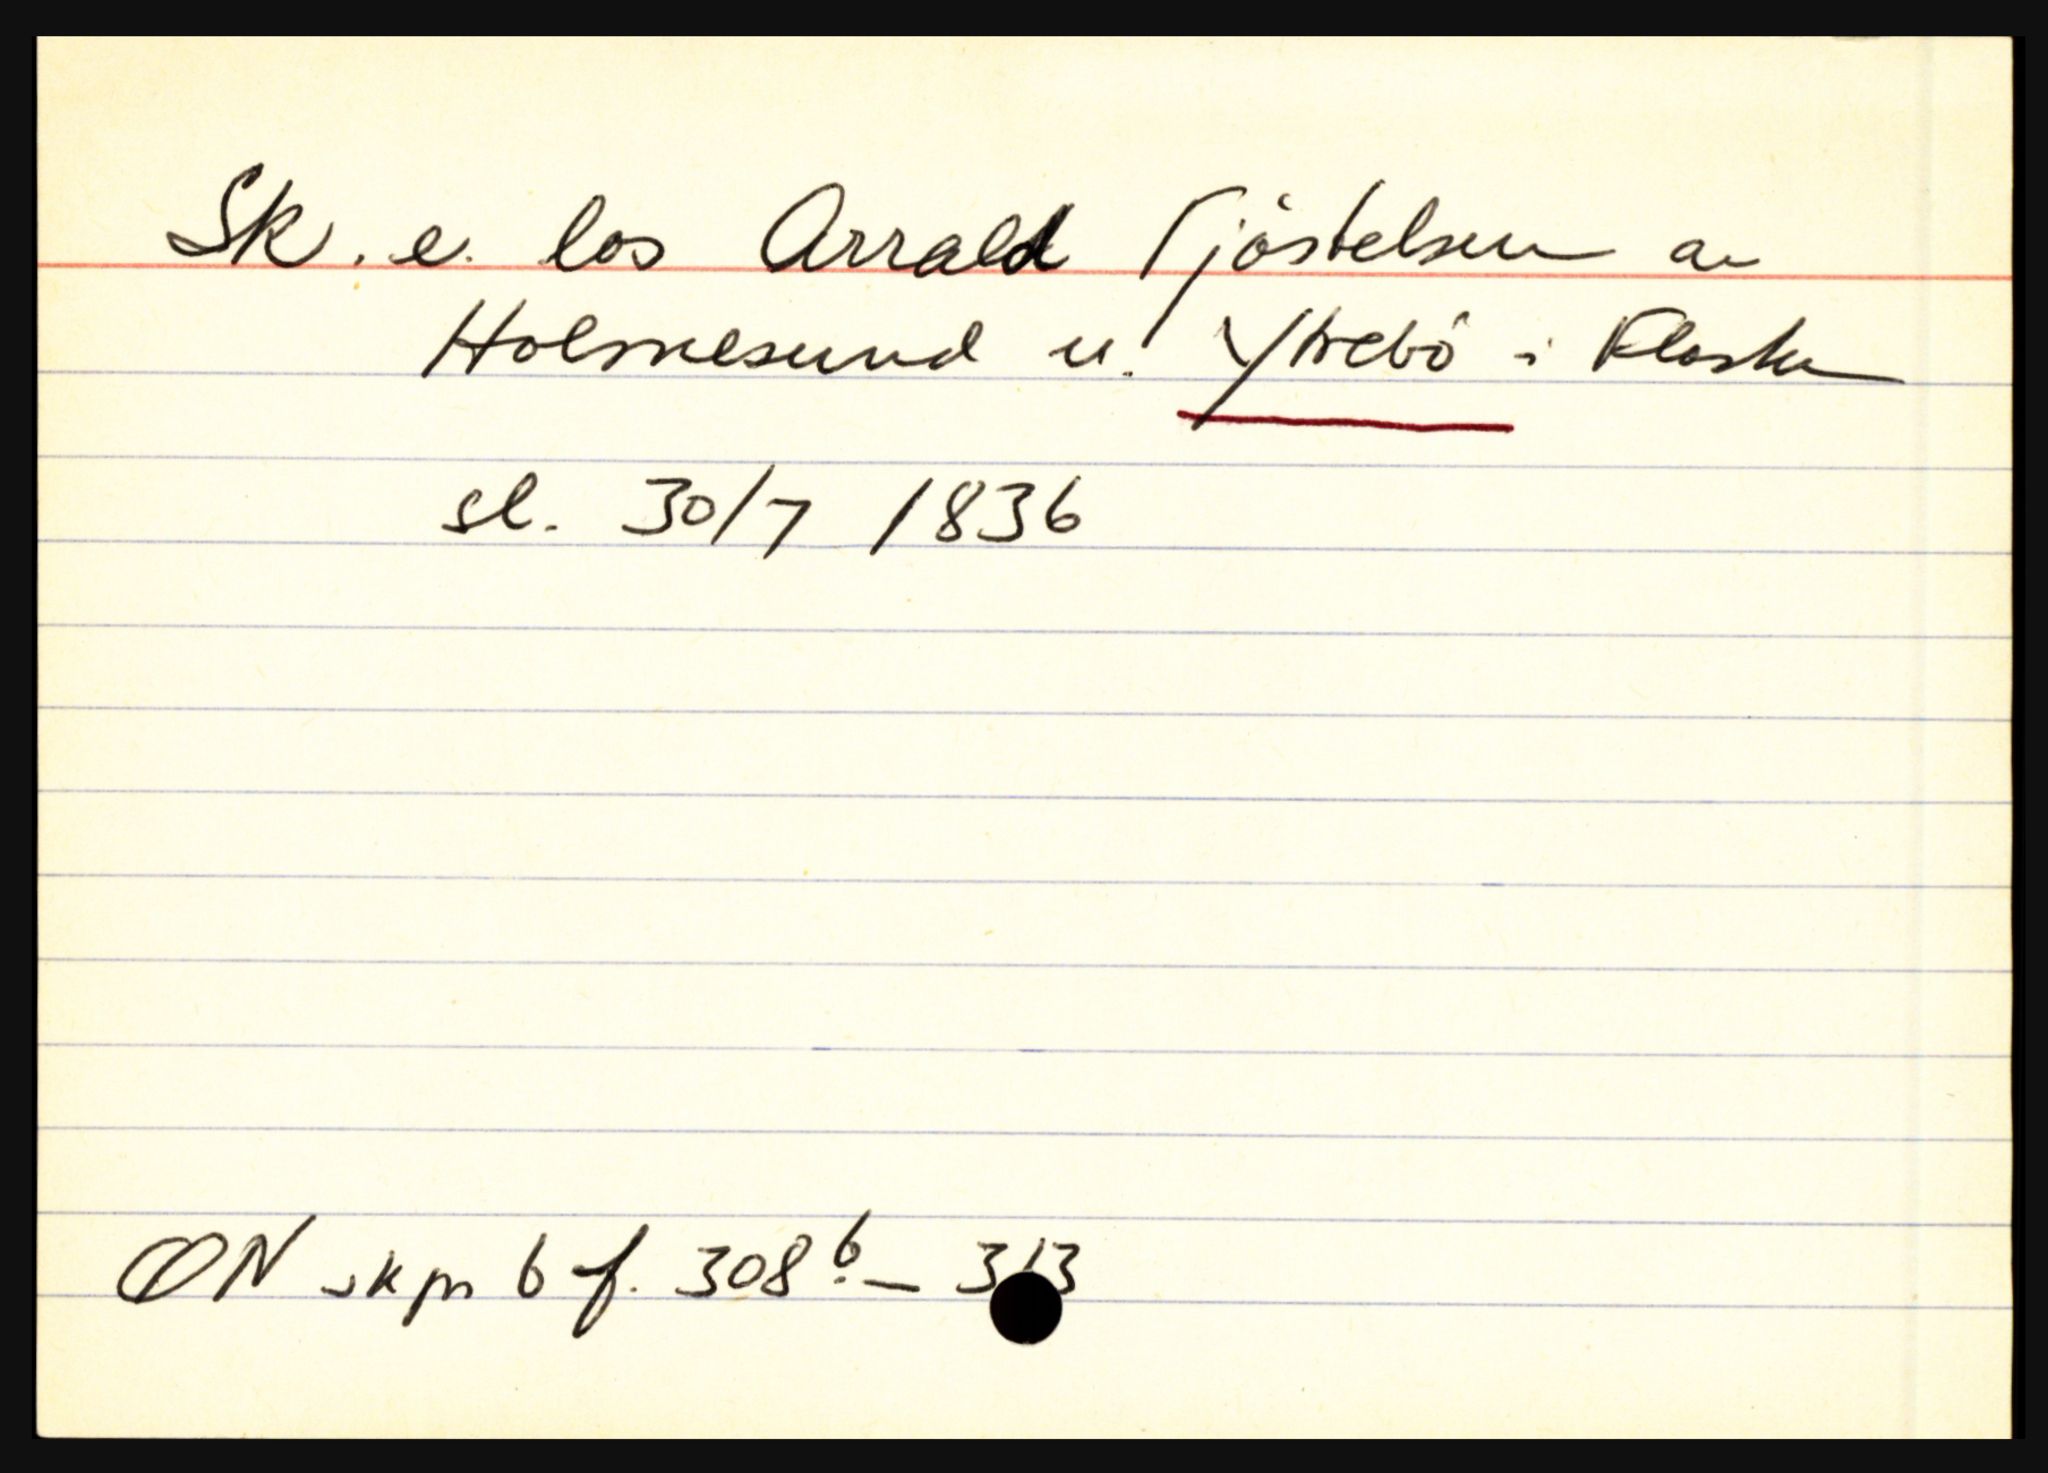 Sk. e. los Arrald Tjöstelsen av
Holmesund u. Ytrebö i Flosta
sl. 30/7 1836
ØN skpr 6 f. 308b. — 313